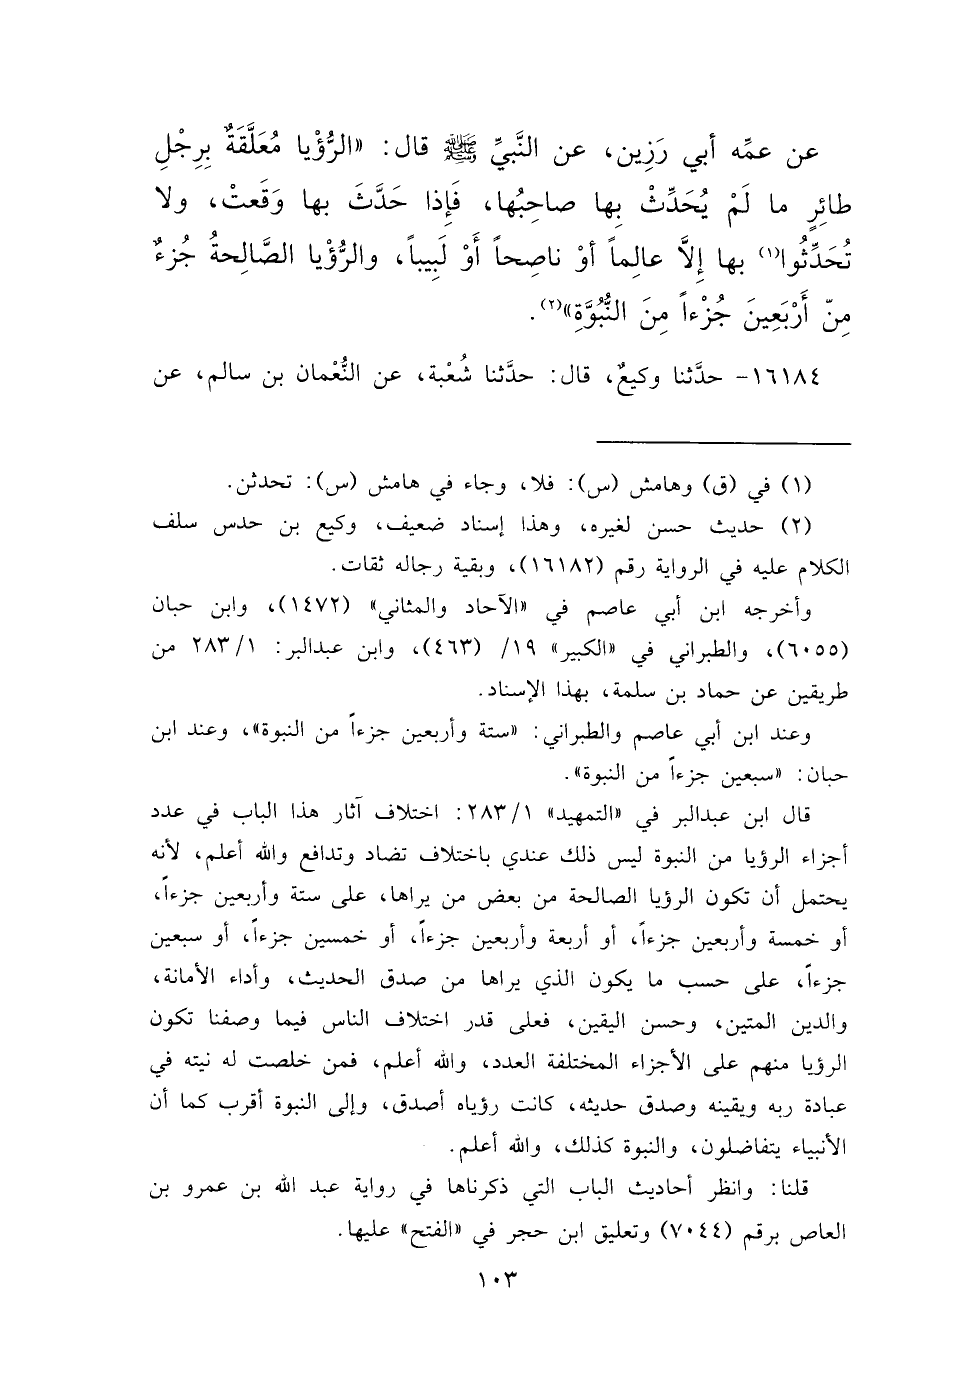 عن عمِّه أبي رَزِين، عن النَّبيِّ ﷺ قال: «الرُّؤْيا مُعَلَّقَةٌ بِرِجْلِ
طائِرٍ ما لَمْ يُحَدِّثْ بها صاحِبُها، فَإِذا حَدَّثَ بها وَقَعتْ، ولا
تُحَدِّثُوا(١) بها إِلَّا عالِماً أوْ ناصِحاً أَوْ لَبِيباً، والرُّؤْيا الصَّالِحةُ جُزءٌ
مِنّ أَرْبَعِينَ جُزْءاً مِنَ النُّبُوَّةِ»(٢).
١٦١٨٤- حدَّثنا وكيعٌ، قال: حدَّثنا شُعْبة، عن النُّعْمان بن سالم، عن
(١) في (ق) وهامش (س): فلا، وجاء في هامش (س): تحدثن.
(٢) حديث حسن لغيره، وهذا إسناد ضعيف، وكيع بن حدس سلف
الكلام عليه في الرواية رقم (١٦١٨٢)، وبقية رجاله ثقات.
وأخرجه ابن أبي عاصم في «الآحاد والمثاني» (١٤٧٢)، وابن حبان
(٦٠٥٥)، والطبراني في «الكبير» ١٩/ (٤٦٣)، وابن عبدالبر: ٢٨٣/١ من
طريقين عن حماد بن سلمة، بهذا الإسناد.
وعند ابن أبي عاصم والطبراني: «ستة وأربعين جزءاً من النبوة»، وعند ابن
حبان: «سبعين جزءاً من النبوة».
قال ابن عبدالبر في «التمهيد» ٢٨٣/١: اختلاف آثار هذا الباب في عدد
أجزاء الرؤيا من النبوة ليس ذلك عندي باختلاف تضاد وتدافع والله أعلم، لأنه
يحتمل أن تكون الرؤيا الصالحة من بعض من يراها، على ستة وأربعين جزءاً،
أو خمسة وأربعين جزءاً، أو أربعة وأربعين جزءاً، أو خمسين جزءاً، أو سبعين
جزءاً، على حسب ما يكون الذي يراها من صدق الحديث، وأداء الأمانة،
والدين المتين، وحسن اليقين، فعلى قدر اختلاف الناس فيما وصفنا تكون
الرؤيا منهم على الأجزاء المختلفة العدد، والله أعلم، فمن خلصت له نيته في
عبادة ربه ويقينه وصدق حديثه، كانت رؤياه أصدق، وإلى النبوة أقرب كما أن
الأنبياء يتفاضلون، والنبوة كذلك، والله أعلم.
قلنا: وانظر أحاديث الباب التي ذكرناها في رواية عبد الله بن عمرو بن
العاص برقم (٧٠٤٤) وتعليق ابن حجر في «الفتح» عليها.
١٠٣